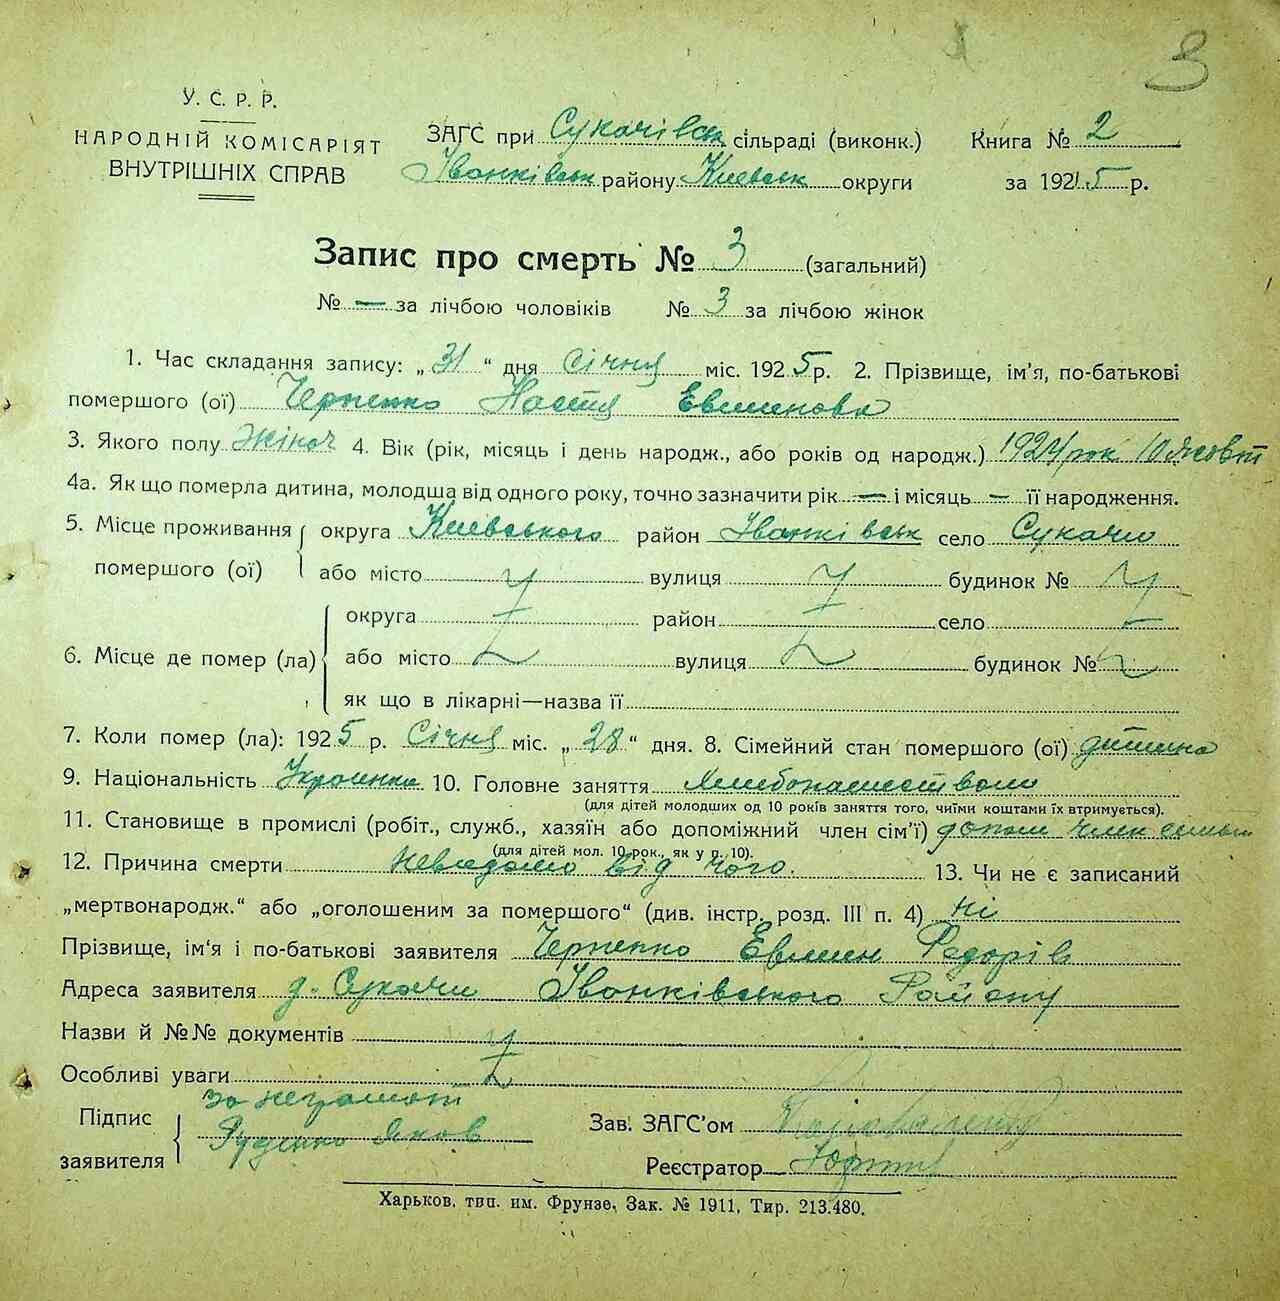 3
У. С. Р. Р.
НАРОДНІЙ КОМІСАРІЯТ
ВНУТРІШНІХ СПРАВ
ЗАГС при Сукачівськ сільраді (виконк.)
Іванківськ району Киевськ округи
Книга № 2
за 1925 р.
Запис про смерть № 3 (загальний)
№ — за лічбою чоловіків № 3 за лічбою жінок
1. Час складання запису: „31“ дня Січня міс. 1925 р. 2. Прізвище, ім’я, по-батькові
помершого (ої) Черненко Настя Евминова
3. Якого полу Жіноч 4. Вік (рік, місяць і день народж., або років од народж.) 1924 рок 10 жовт
4а. Як що померла дитина, молодша від одного року, точно зазначити рік — і місяць — її народження.
5. Місце проживання помершого (ої) округа Киевського район Іванківськ село Сукачи
або місто вулиця будинок №
6. Місце де помер (ла) округа район село
або місто вулиця будинок №
як що в лікарні—назва її
7. Коли помер (ла): 1925 р. Січня міс. „28“ дня. 8. Сімейний стан помершого (ої) дитина
9. Національність Украинка 10. Головне заняття Хлибопашеством
(для дітей молодших од 10 років заняття того, чиїми коштами їх втримується).
11. Становище в промислі (робіт., служб., хазяїн або допоміжний член сім’ї) допом член
(для дітей мол. 10 рок., як у п. 10).
12. Причина смерти невидомо від чого. 13. Чи не є записаний
„мертвонародж.“ або „оголошеним за помершого“ (див. інстр. розд. III п. 4) Ні
Прізвище, ім‘я і по-батькові заявителя Черненко Евмин Федорів
Адреса заявителя д. Сукачи Іванківського Району
Назви й №№ документів
Особливі уваги
Підпис заявителя за неграмот
Руденко Яков
Зав. ЗАГС’ом
Реєстратор
Харьков, тип. им. Фрунзе, Зак. № 1911, Тир. 213.480.